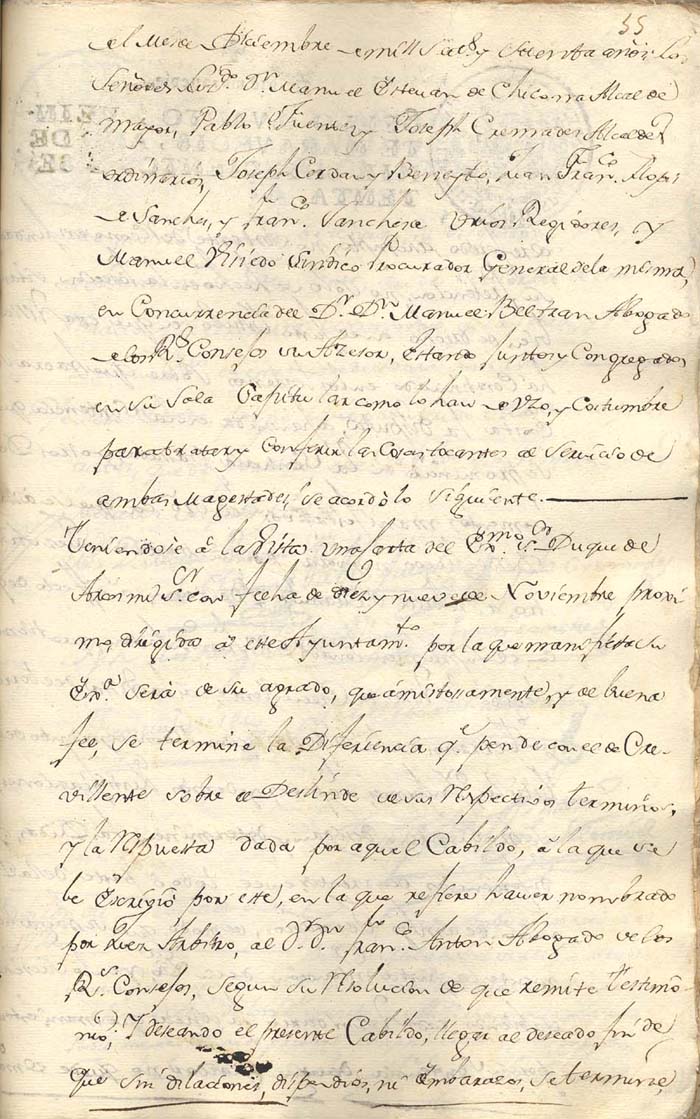 55
el Mes de Diziembre de mill Setz.s y Setenta años: los
Señores Liz.do Dn. Manuel Estevan de Chicorra Alcalde
mayor, Pablo Fuentes y Joseph Cremades Alcaldes
ordinarios, Joseph Cerdan y Beneyto, Juan Fran.co
de Sanches, y Fran.co Sanches de Urios Regidores, y
Manuel Asiedo Sindico Procurador General de la misma,
en Concurrencia del Dr. Dn. Manuel Beltran Abogado
de los R.s Consejos su Asesor, estando Juntos y Congregados
en su Sala Capitular como lo han de Vzo, y Costumbre
para tratar y Conferir las Cosas tocantes al Servicio de
ambas Magestades, se acordó lo siguiente.
Teniendose â la Vista una Carta del Exmo. Sr. Duque de
Arcos mi Sr. con fecha de diez y nueve de Noviembre proxi
mo, dirigida â este Ayuntam.to por la que manifiesta su
Exa. será de su agrado, que amistossamente, y de buena
fee, se termine la Diferiencia q.e pende con el de Cre-
villente sobre el Deslinde de sus respectivos terminos,
y la respuesta dada por aquel Cabildo, â la que se
le Escrivió por este, en la que refiere haver nombrado
por Juez Arbitro, al Dr. Dn. Fran.co Anton Abogado de los
R.s Consejos, segun su resolucion de que remite testimo-
nio; Y deseando el presente Cabildo, llegar al deseado fin de
que sin dilaciones, dispendios, ni embarazos, se termine,